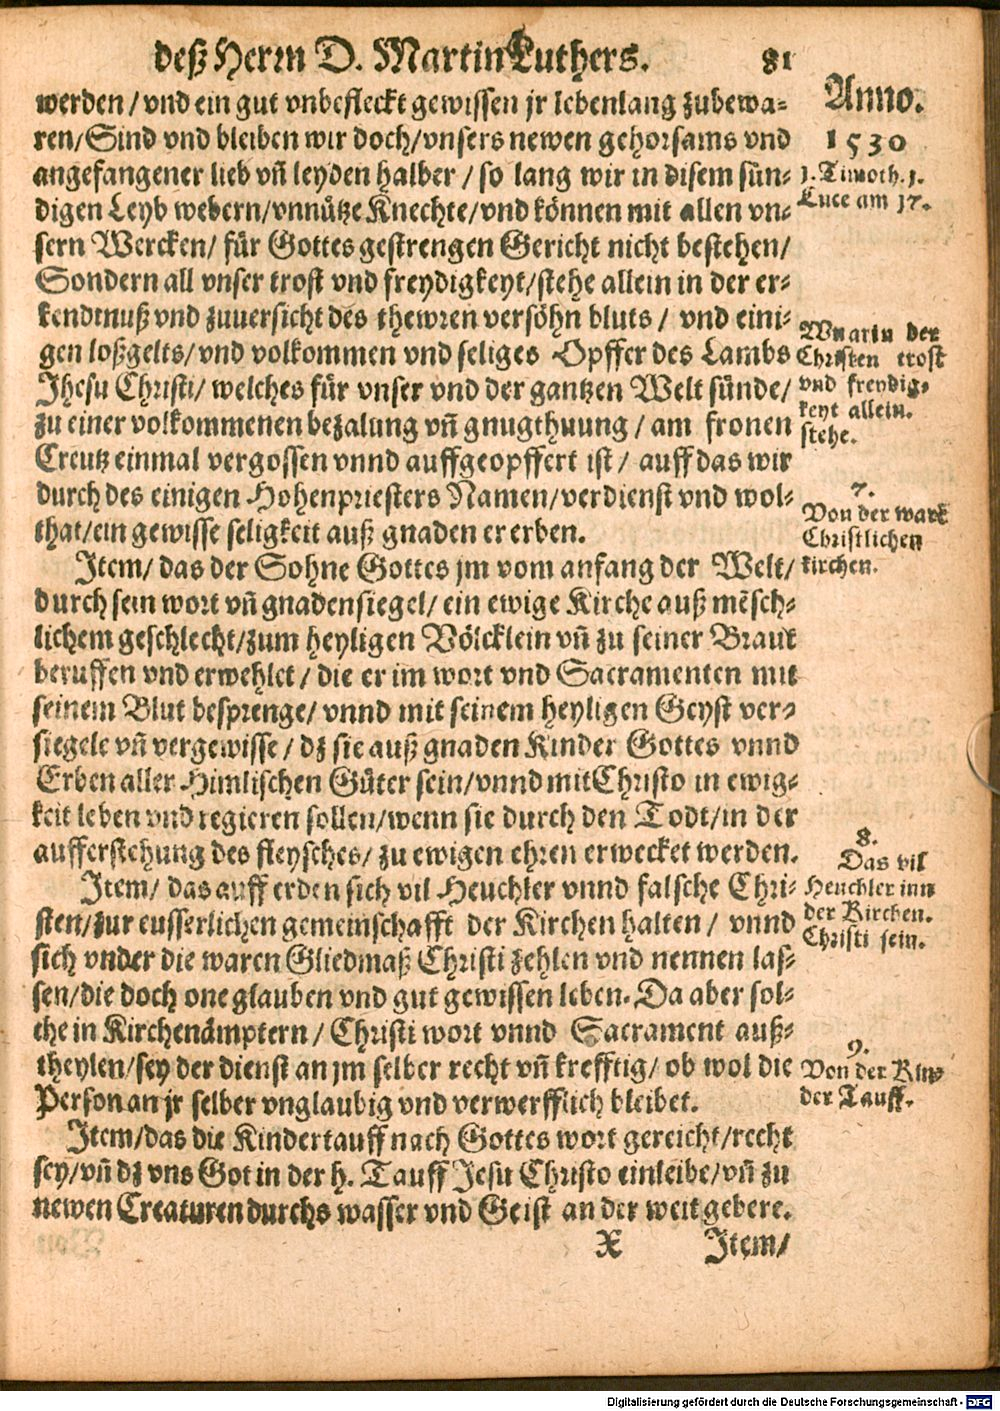 deß Herrn D. Martin Luthers. 81
werden / vnd ein gut vnbefleckt gewissen jr lebenlang zubewa⸗
ren / Sind vnd bleiben wir doch / vnsers newen gehorsams vnd
angefangener lieb vñ leyden halber / so lang wir in disem sün⸗
digen Leyb webern / vnnütze Knechte / vnd können mit allen vn⸗
sern Wercken / für Gottes gestrengen Gericht nicht bestehen /
Sondern all vnser trost vnd freydigkeyt / stehe allein in der er⸗
kendtnuß vnd zuuersicht des thewren versöhn bluts / vnd eini⸗
gen loßgelts / vnd volkommen vnd seliges Opffer des Lambs
Jhesu Christi / welches für vnser vnd der gantzen Welt sünde /
zu einer volkommenen bezalung vñ gnugthuung / am fronen
Creutz einmal vergossen vnnd auffgeopffert ist / auff das wir
durch des einigen Hohenpriesters Namen / verdienst vnd wol⸗
that / ein gewisse seligkeit auß gnaden ererben.
Item / das der Sohne Gottes jm vom anfang der Welt /
durch sein wort vñ gnadensiegel / ein ewige Kirche auß mẽsch⸗
lichem geschlecht / zum heyligen Völcklein vñ zu seiner Braut
beruffen vnd erwehlet / die er im wort vnd Sacramenten mit
seinem Blut besprenge / vnnd mit seinem heyligen Geyst ver⸗
siegele vñ vergewisse / dz sie auß gnaden Kinder Gottes vnnd
Erben aller Himlischen Güter sein / vnnd mit Christo in ewig⸗
keit leben vnd regieren sollen / wenn sie durch den Todt / in der
aufferstehung des fleysches / zu ewigen ehren erwecket werden.
Item / das auff erden sich vil Heuchler vnnd falsche Chri⸗
sten / zur eusserlichen gemeinschafft der Kirchen halten / vnnd
sich vnder die waren Gliedmaß Christi zehlen vnd nennen las⸗
sen / die doch one glauben vnd gut gewissen leben. Da aber sol⸗
che in Kirchenämptern / Christi wort vnnd Sacrament auß⸗
theylen / sey der dienst an jm selber recht vñ krefftig / ob wol die
Person an jr selber vnglaubig vnd verwerfflich bleibet.
Item / das die Kindertauff nach Gottes wort gereicht / recht
sey / vñ dz vns Got in der h. Tauff Jesu Christo einleibe / vñ zu
newen Creaturen durchs wasser vnd Geist an der weit gebere.
X Item /
Anno.
1530
1. Timoth. 1.
Luce am 17.
Warin der
Christen trost
vnd freydig⸗
keyt allein.
stehe.
7.
Von der ware
Christlichen
kirchen.
8.
Das vil
Heuchler inn
der Kirchen.
Christi sein.
9.
Von der Kin⸗
der Tauff.
Digitalisierung gefördert durch die Deutsche Forschungsgemeinschaft - DFG